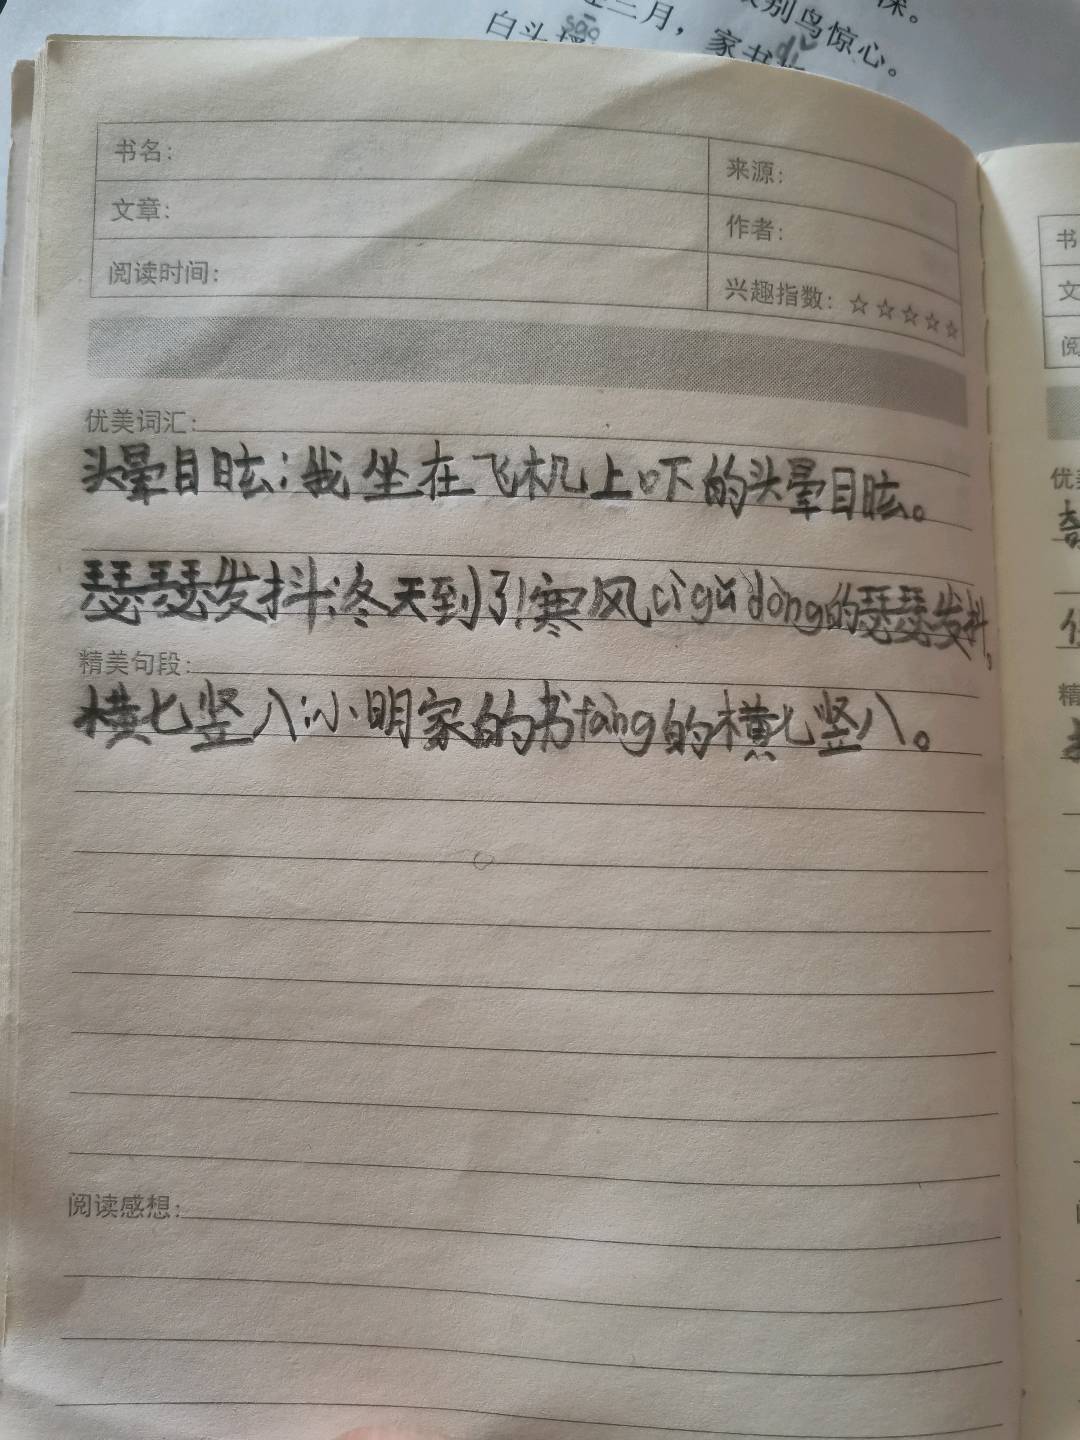 三月，家书
别鸟惊心。
深。
白头搔
sāo
dǐ
书名：
来源：
文章：
作者：
阅读时间：
兴趣指数：☆☆☆☆☆
优美词汇：
头晕目眩：我坐在飞机上吓的头晕目眩。
瑟瑟发抖：冬天到了！寒风cì gǔ dòng的瑟瑟发抖。
精美句段：
横七竖八：小明家的书fáng的横七竖八。
阅读感想：
书
文
阅
优美
精